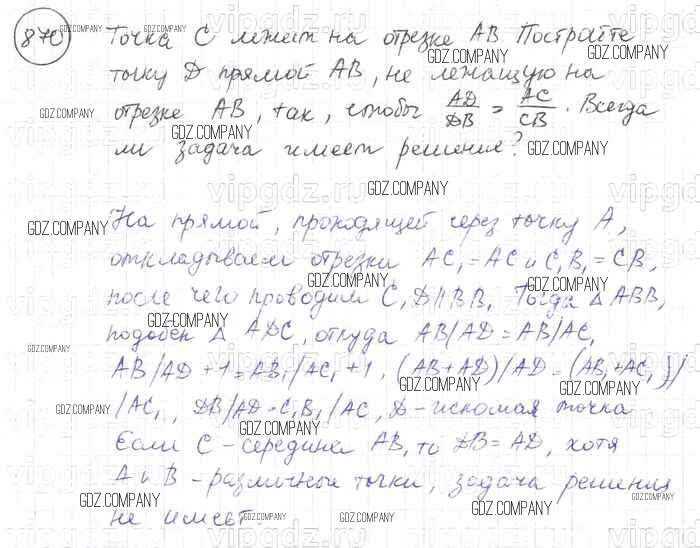 870 Точка C лежит на отрезке AB Постройте
точку D прямой AB, не лежащую на
отрезке AB, так, чтобы AD/DB = AC/CB. Всегда
ли задача имеет решение?
На прямой, проходящей через точку A,
откладываем отрезки AC₁ = AC и C₁B₁ = CB,
после чего проводим C₁D || BB₁ Тогда △ ABB₁
подобен △ ADC₁ откуда AB/AD = AB₁/AC₁
AB/AD + 1 = AB₁/AC₁ + 1, (AB+AD)/AD = (AB₁+AC₁)/
/AC₁, DB/AD = C₁B₁/AC₁ D - искомая точка
Если C - середина AB, то DB = AD, хотя
A и B - различные точки, задача решения
не имеет.
GDZ.COMPANY
vipgdz.ru